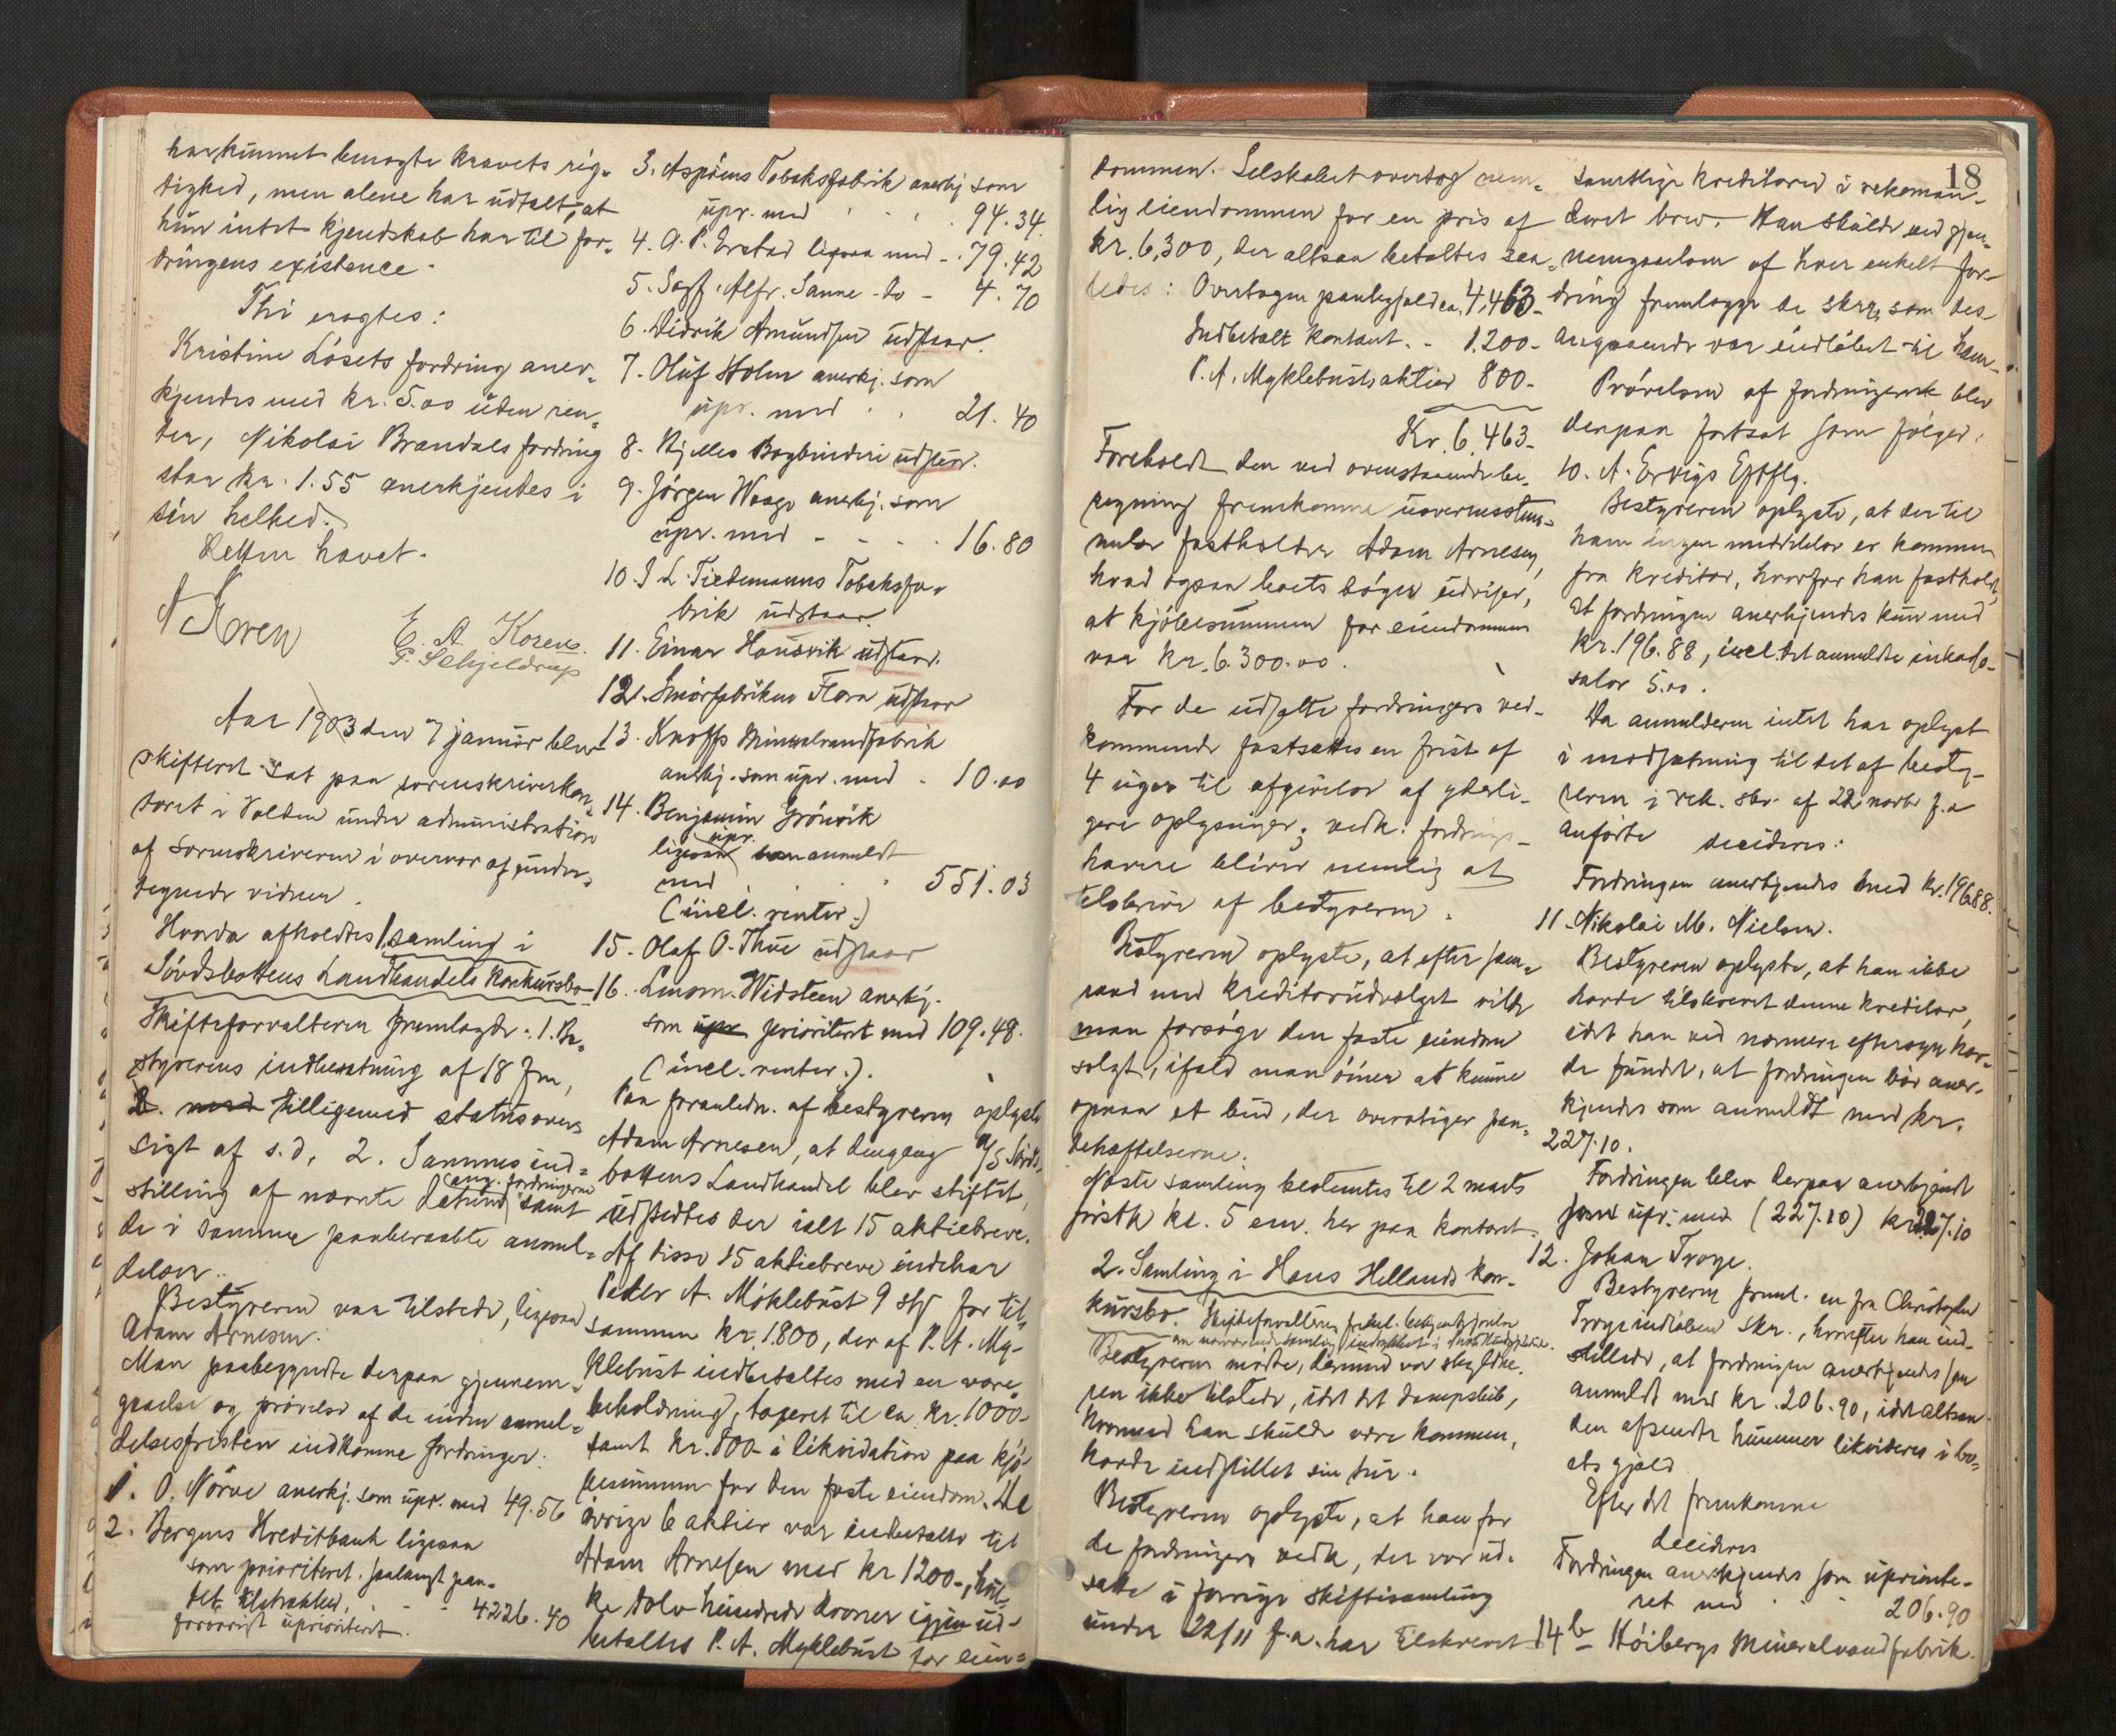 har kunnet benegte kravets rig-
tighed, men alene har udtalt, at
hun intet kjendskab har til for-
dringens existence.
Thi eragtes:
Kristine Løsets fordring aner-
kjendes med kr. 5.00 uden ren-
ter, Nikolai Brandals fordring
stor kr. 1.55 anerkjendes i
sin helhed.
Retten hævet.
Koren
E. A. Koren.
P. Schjeldrup
Aar 1903 den 7 januar blev
skifteret sat paa sorenskriverkon-
toret i Volden under administration
af sorenskriveren i overvær af under-
tegnede vidner.
Hvorda afholdtes 1. samling i
Søvdsbottens Landhandels konkursbo
Skifteforvalteren fremlagde: 1. Be-
styrerens indberetning af 18 f.m.,
2. med tilligemed statusover-
sigt af s.d., 2. Sammes ind-
stilling af nævnte datum ang. fordringerne samt
de i samme paaberaabte anmel-
delser.
Bestyreren var tilstede, ligesaa
Adam Arnesen.
Man paabegyndte derpaa gjennem-
gaaelse og prøvelse af de inden anmel-
delsesfristen indkomne fordringer:
1. O. Nørve anerkj. som upr. med 49.56
2. Bergens Kreditbank ligesaa
som prioriteret, saalangt pan-
tet tilstrækked,
forøvrigt uprioriteret. 4226.40
3. Aspøens Tobaksfabrik anerkj som
upr. med 94.34
4. O. P. Erstad ligesaa med - 79.42
5. Sagf. Alfr. Sanne - do - 4.70
6. Didrik Amundsen udstaar.
7. Oluf Holm anerkj. som
upr. med 21.40
8. Hjelles Bogbinderi udstaar.
9. Jørgen Waage anerkj. som
upr. med - - - 16.80
10. J. L. Tiedemanns Tobaksfa-
brik udstaar.
11. Einar Housvik udstaar.
12. Smørfabriken Flora udstaar
13. Knoffs Mineralvandfabrik
anerkj. som upr. med - 10.00
14. Benjamin Grønvik
ligesaa upr. som anmeldt
med 551.03
(incl. renter.)
15. Olaf O. Thue udstaar
16. Lensm. Widsteen anerkj.
som upr prioriteret med 109.48.
(incl. renter.).
Paa foranledn. af bestyreren oplyste
Adam Arnesen, at dengang A/S Søvds-
bottens Landhandel blev stiftet,
udstedtes der ialt 15 aktiebreve.
Af disse 15 aktiebreve indehar
Peder A. Møklebust 9 stk for til-
sammen kr. 1.800, der af P. A. My-
klebust indbetaltes med en vare-
beholdning, taxeret til ca kr. 1000-
samt kr. 800- i likvidation paa kjø-
besummen for den faste eiendom. De
øvrige 6 aktier var indbetalte til
Adam Arnesen med kr 1200-, hvil-
ke tolv hundrede kroner igjen ud-
betaltes P. A. Myklebust for eien-
18
dommen. Selskabet overtog nem-
lig eiendommen for en pris af
kr. 6,300, der altsaa betaltes saa-
ledes: Overtagen pantegjeld ca. 4,463-
Indbetalt kontant. - 1.200-
P. A. Myklebusts aktier 800-
Kr. 6.463-
Foreholdt den ved ovenstaaende be-
regning fremkomne uoverensstem-
melse fastholder Adam Arnesen,
hvad ogsaa boets bøger udviser,
at kjøbesummen for eiendommen
var kr. 6.300.00.
For de udsatte fordringers ved-
kommende fastsattes en frist af
4 uger til afgivelse af yderli-
gere oplysninger; vedk. fordrings-
havere bliver nemlig at
tilskrive af bestyreren.
Bestyreren oplyste, at efter sam-
raad med kreditorudvalget vilde
man forsøge den faste eiendom
solgt, ifald man øiner at kunne
opnaa et bud, der overstiger pan-
tehæftelserne.
Næste samling bestemtes til 2 marts
førstk kl. 5 em. her paa kontoret.
2. Samling i Hans Hellands kon-
kursbo. Skifteforvalteren freml. bekjendtgjørelse
om nærværende samling indrykket i
Bestyreren mødte, derimod var skyldne-
ren ikke tilstede, idet det dampskib,
hvormed han skulde være kommen,
havde indstillet sin tur.
Bestyreren oplyste, at han for
de fordringers vedk, der var ud-
satte i forrige skiftesamling
under 22/11 f.a. har tilskrevet
samtlige kreditorer i rekoman-
deret brev. Han skulde ved gjen-
nemgaaelsen af hver enkelt for-
dring fremlægge de skrr, som des-
angaaende var indløbet til ham.
Prøvelsen af fordringerne blev
derpaa fortsat som følger:
10. A. Ervigs Eftflg.
Bestyreren oplyste, at der til
ham ingen meddelelser er kommen
fra kreditor, hvorfor han fastholdt,
at fordringen anerkjendes kun med
kr. 196.88, incl. det anmeldte inkasso-
salær 5.00.
Da anmelderen intet har oplyst
i modsætning til det af besty-
reren i rek. skr. af 22 novbr f.a
anførte decideres:
Fordringen anerkjendes med kr. 196.88.
11. Nikolai M. Nielsen.
Bestyreren oplyste, at han ikke
havde tilskrevet denne kreditor,
idet han ved nærmere eftersyn hav-
de fundet, at fordringen bør aner-
kjendes som anmeldt med kr.
227.10.
Fordringen blev derpaa anerkjendt
som upr. med (227.10) kr 227.10
12. Johan Troye.
Bestyreren freml. en fra Christopher
Troye indløben skr., hvorefter han ind-
stillede, at fordringen anerkjendes som
anmeldt med kr. 206.90, idet altsaa
den afsendte hummer likvideres i bo-
ets gjæld
Efter det fremkomne
decideres
Fordringen anerkjendes som upriorite-
ret med 206.90
14 b - Høibergs Mineralvandfabrik.